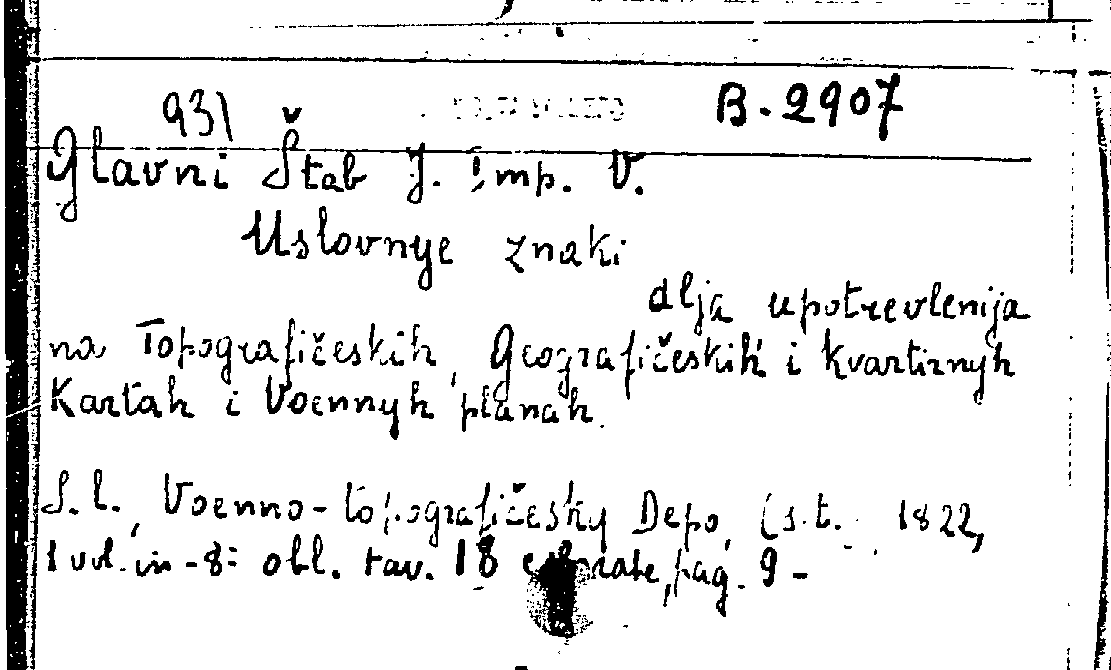 931 B. 2907
Glavni Štab J. Imp. V.
Uslovnye znaki
dlja upotrevlenija
na Topografičeskih, Geografičeskih i kvartirnyh
Kartah i Voennyh planah.
S. l., Voenno-topografičesky Depo, (s.t. 1822,
1 vol. in-8: obl. tav. 18 pag. 9 -